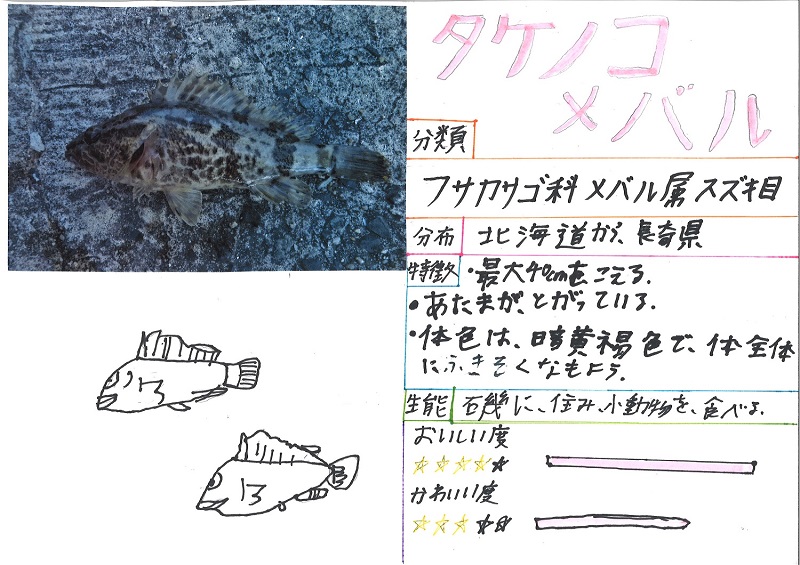 タケノコ
メバル
分類
フサカサゴ科 メバル属 スズキ目
分布 北海道から、長崎県
特徴 ・最大40cmをこえる。
・あたまが、とがっている。
・体色は、暗黄褐色で、体全体
にふきそくなもよう。
生態 石幾に、住み、小動物を、食べる。
おいしい度
☆☆☆☆★
かわいい度
☆☆☆★★